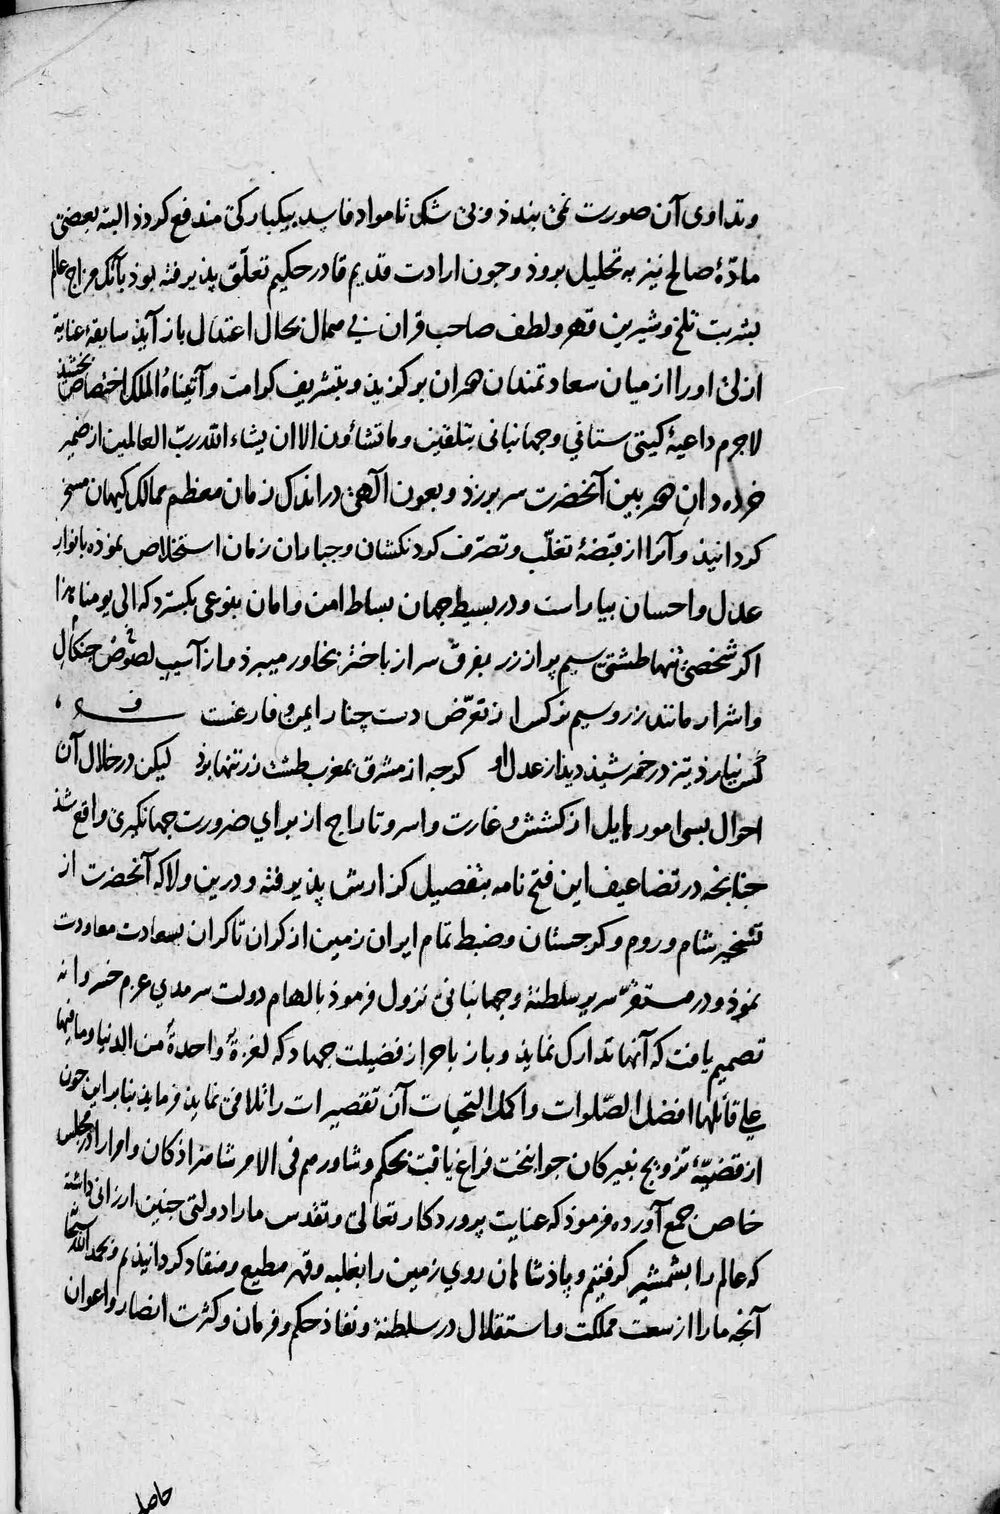 وتداوی آن صورت نمی بندذ وبی شکی تا مواد فاسده بیکبارکی مندفع کردذ البته بعضی
مادّهٔ صالح نیز به تحلیل بروذ وجون ارادت قدیم قادر حکیم تعلّق پذیرفته بوذ بآنک مزاج عالم
بشربت تلخ وشیرین قهر ولطف صاحب قران بی همال بحال اعتدال باز آیذ سابقهٔ عنایة
ازلی اورا از میان سعادتمندان جهان برکزیذ وبتشریف کرامت وآتیناهُ الملک اختصاص بخشیذ
لاجرم داعیهٔ کیتی ستانی وجهانبانی بتلقین وما تشاؤن الا ان یشاء الله ربّ العالمین از ضمیر
خرده دان هنر بین آنحضرت سر برزد وبعون الٓهی در اندک زمان معظم ممالک کیهان مسخر
کردانیذ وآنرا از قبضهٔ تغلّب وتصرّف کردنکشان وجباران زمان استخلاص نموذه بانوار
عدل واحسان بیاراست ودر بسیط جهان بساط امن وامان بنوعی بکسترد که الی یومنا هذا
اکر شخصی تنها طشتی سیم پر از زر بفرق سر از باختر بخاور میبرذ از آسیب لصوص جنکال
واشرار مانند زر وسیم نرکس از تعرّض دست چنار ایمن وفارغست
کس نیارذ تیز در خورشیذ دیذ از عدل او کرجه از مشرق بمغرب طشت زر تنها بوذ لیکن در خلال آن
احوال بسی امور هایل از کشش وغارت واسر وتاراج از برای ضرورت جهانکیری واقع شذ
جنانجه در تضاعیف این فتح نامه بتفصیل کزارش پذیرفته ودرین ولا که آنحضرت از
تسخیر شام وروم وکرجستان وضبط تمام ایران زمین از کران تا کران بسعادت معاودت
نموذ ودر مستقرّ سریر سلطنة وجهانبانی نزول فرموذ بالهام دولت سرمدی عزم خسروانه
تصمیم یافت که آنها تدارک نمایذ وباز باحراز فضیلت جهاد که لغزوةٌ واحدةٌ من الدنیا وما فیها
علی قائلها افضل الصّلوات واکمل التحیات آن تقصیرات را تلافی نمایذ فرمایذ بنابراین جون
از قضیّهٔ تزویج نبیرکان جوانبخت فراغ یافت بحکم وشاورهم فی الامر شاهزاذکان وامرارا در مجلس
خاص جمع آورده فرموذ که عنایت پروردکار تعالی وتقدس مارا دولتی جنین ارزانی داشته
که عالم را بشمشیر کرفتیم وپاذشاهان روی زمین را بغلبه وقهر مطیع ومنقاد کردانیذیم وبحمد الله سبحانه
آنجه مارا از سعت مملکت واستقلال در سلطنة ونفاذ حکم وفرمان وکثرت انصار واعوان
حاصل